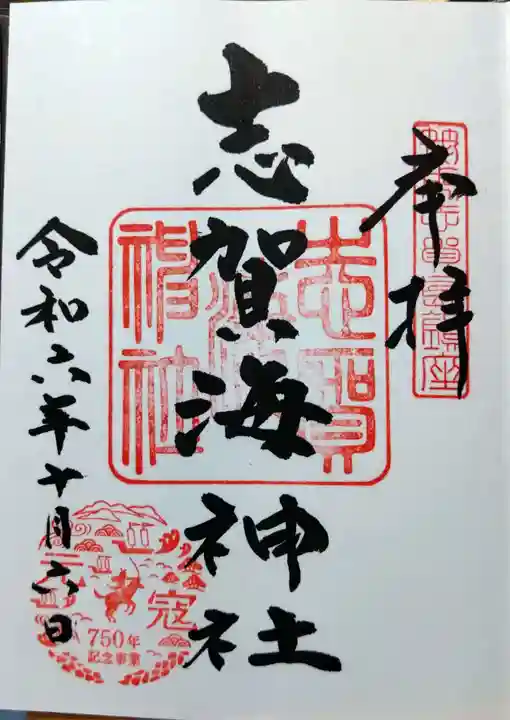 奉拝
志賀海神社
志賀海神社
令和六年十月六日
元寇
750年
記念事業